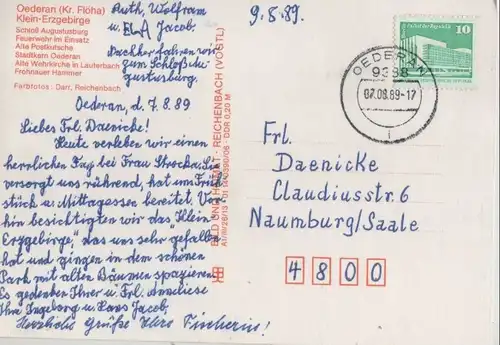 Oederan (Kr. Flöha)
Klein-Erzgebirge
Schloß Augustusburg
Feuerwehr im Einsatz
Alte Postkutsche
Stadtkern Oederan
Alte Wehrkirche in Lauterbach
Frohnauer Hammer
Farbfotos: Darr, Reichenbach
Ruth, Wolfram
u. Jacob.
Nachher fahren wir
zum Schloß Au-
gustusburg.
9.8.89.
Oederan, d. 7.8.89
Liebes Frl. Daenicke!
Heute verleben wir einen
herrlichen Tag bei Frau Sie
versorgt uns rührend, hat uns Früh-
stück u. Mittagessen bereitet. Vor-
hin besichtigten wir das "Klein-
Erzgebirge" das uns sehr gefallen
hat und gingen in dem schönen
Park mit alten Bäumen spazieren.
Es gedenken Ihrer u. Frl. Anneliese
Ihre Ingeborg und Hans Jacob.
Herzliche Grüße Ihre Fischerin!
BILD UND HEIMAT · REICHENBACH (VOGTL)
DDR 0,20 M
OEDERAN
9388
07.08.89-17
10
Frl.
Daenicke
Claudiusstr. 6
Naumburg/Saale
4800